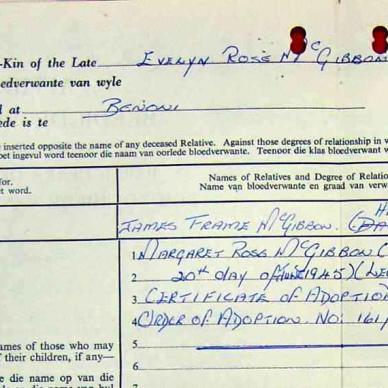 -Kin of the Late EVELYN ROSS McGIBBON
oedverwante van wyle
d at BENONI
ede is te
inserted opposite the name of any deceased Relative. Against those degrees of relationship in w
oet ingevul word teenoor die naam van oorlede bloedverwante. Teenoor die klas bloedverwant w
for. Names of Relatives and Degree of Relatio
t word. Name van bloedverwante en graad van verw
JAMES FRAME McGIBBON. (
1. MARGARET ROSS McGIBBON (
2. 20th day of JUNE 1945) (LE
3 CERTIFICATE OF ADOPTIO
4. ORDER OF ADOPTION. NO: 161
5
ames of those who may 6
f their children, if any— 7
e die name op van die 8